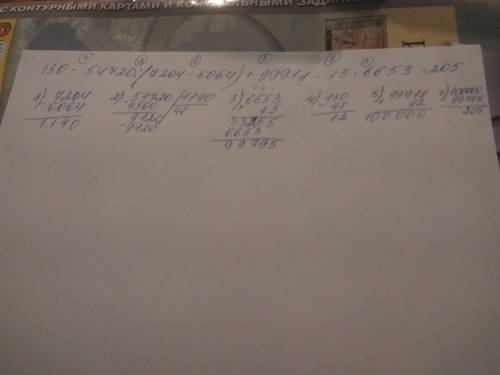 С КОНТУРНЫМИ КАРТАМИ И КОНТРОЛЬНЫМИ ЗАДАНИЯМИ
130 - 54720 : (7204 - 6064) + 99918 - 15 · 6653 = 205
1) 7204
- 6064
1140
2) 54720 | 1140
4560 | 48
9120
- 9120
3) 6653
× 15
33265
6653
99795
4) 130
48
82
5) 99918
+ 82
100.000
6) 100000
- 99795
205